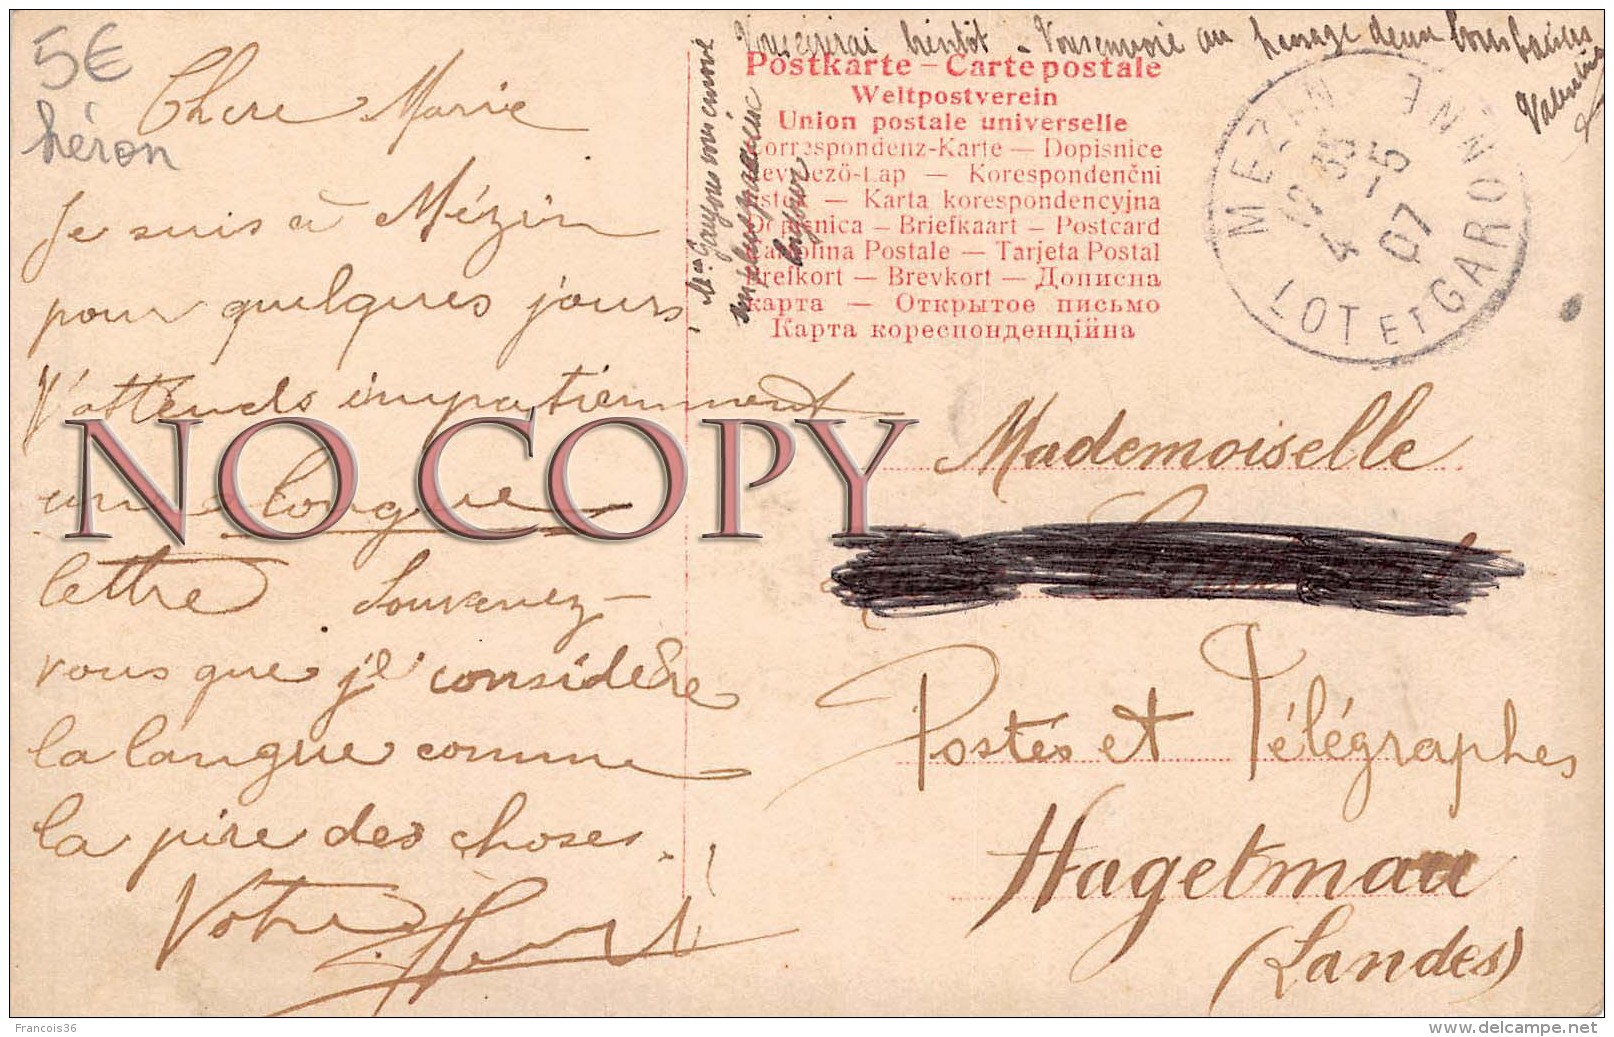 5€
héron
Chere Marie
Je suis à Mézin
pour quelques jours
J'attends impatiemment
une longue
lettre Souvenez-
vous que je considère
la langue comme
la pire des choses.
Votre
Vous écrirai bientôt - Vous envoie au passage deux bons baisers
Valentine
Postkarte – Carte postale
Weltpostverein
Union postale universelle
Correspondenz-Karte — Dopisnice
Levelező-Lap — Korespondenční
listek — Karta korespondencyjna
Dopisnica – Briefkaart – Postcard
Cartolina Postale – Tarjeta Postal
Brefkort – Brevkort — Дописна
карта — Открытое письмо
Карта кореспонденційна
MEZIN
12 35
4 -5
07
LOT ET GARONNE
Mademoiselle
Postes et Télégraphes
Hagetmau
(Landes)
NO COPY
Francois36
www.delcampe.net